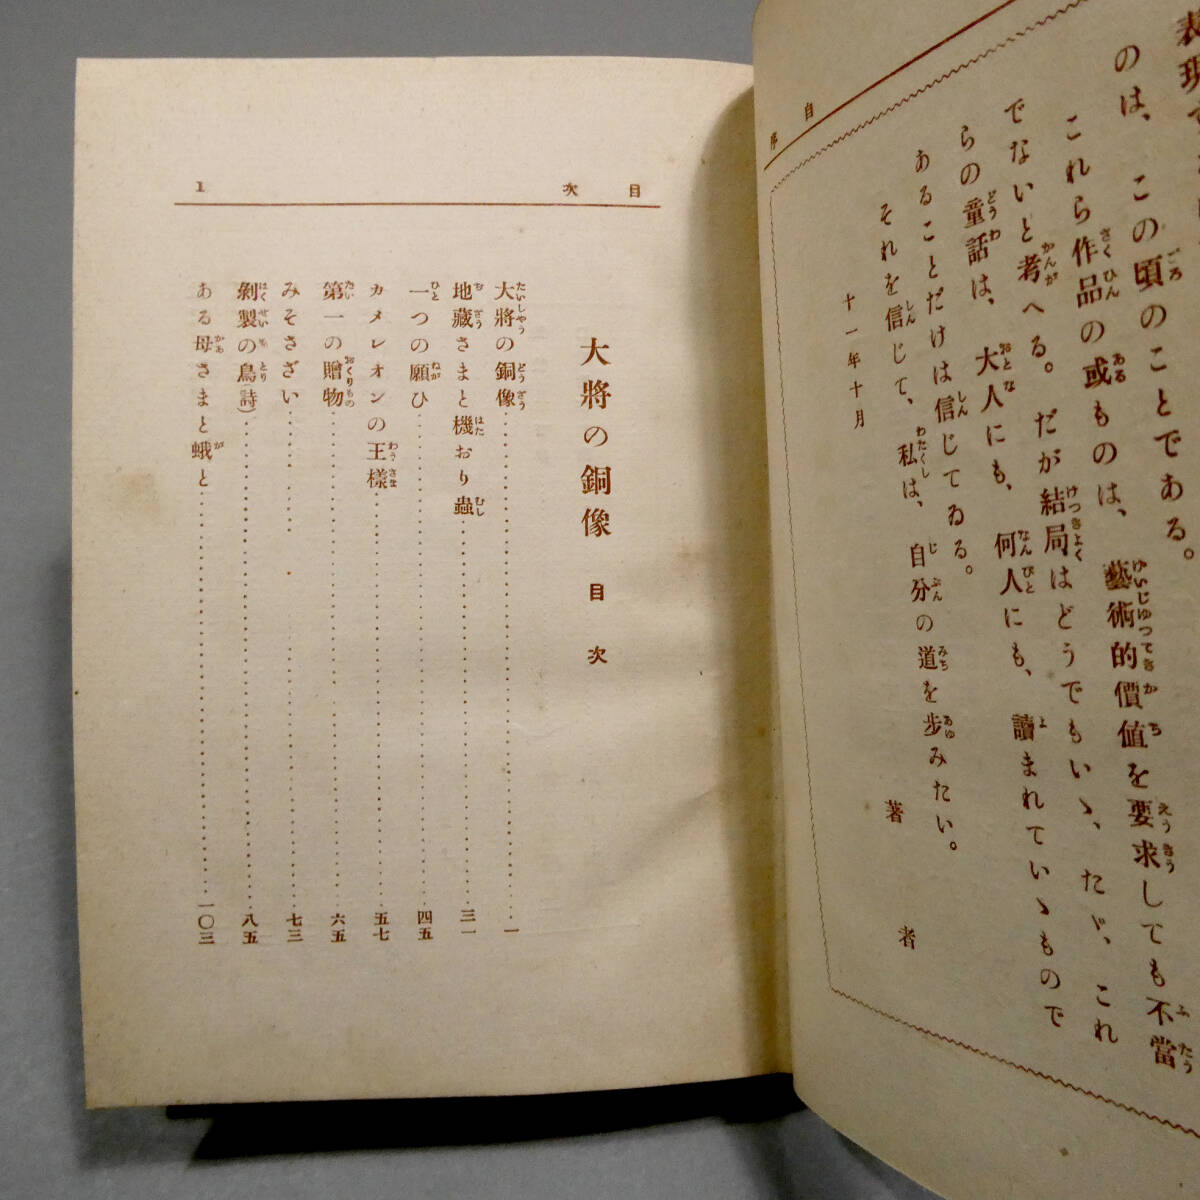 自序
表現で
のは、この頃のことである。
これら作品の或ものは、藝術的價値を要求しても不當
でないと考へる。だが結局はどうでもいゝ、たゞ、これ
らの童話は、大人にも、何人にも、讀まれていゝもので
あることだけは信じてゐる。
それを信じて、私は、自分の道を歩みたい。
十一年十月
著者
目次
1
大將の銅像 目次
大將の銅像……一
地藏さまと機おり蟲……三一
一つの願ひ……四五
カメレオンの王樣……五七
第一の贈物……六五
みそさざい……七三
剝製の鳥詩)……八五
ある母さまと蛾と……一〇三